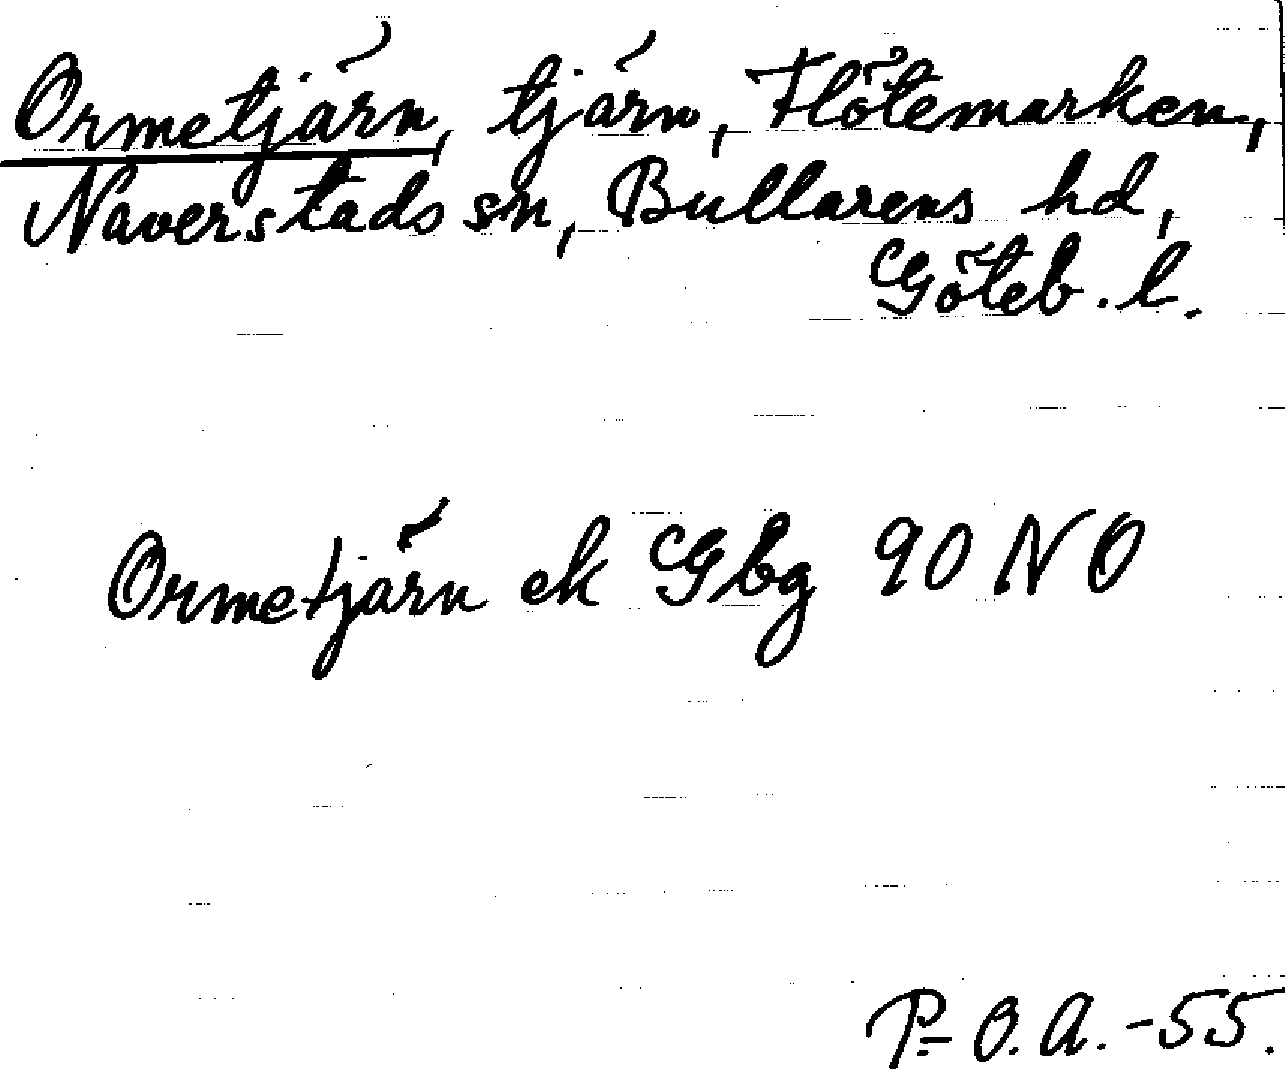 Ormetjärn, tjärn, Flötemarken,
Naverstads sn, Bullarens hd,
Göteb. l.
Ormetjärn ek Gbg 90 NO
P-O.A.-55.